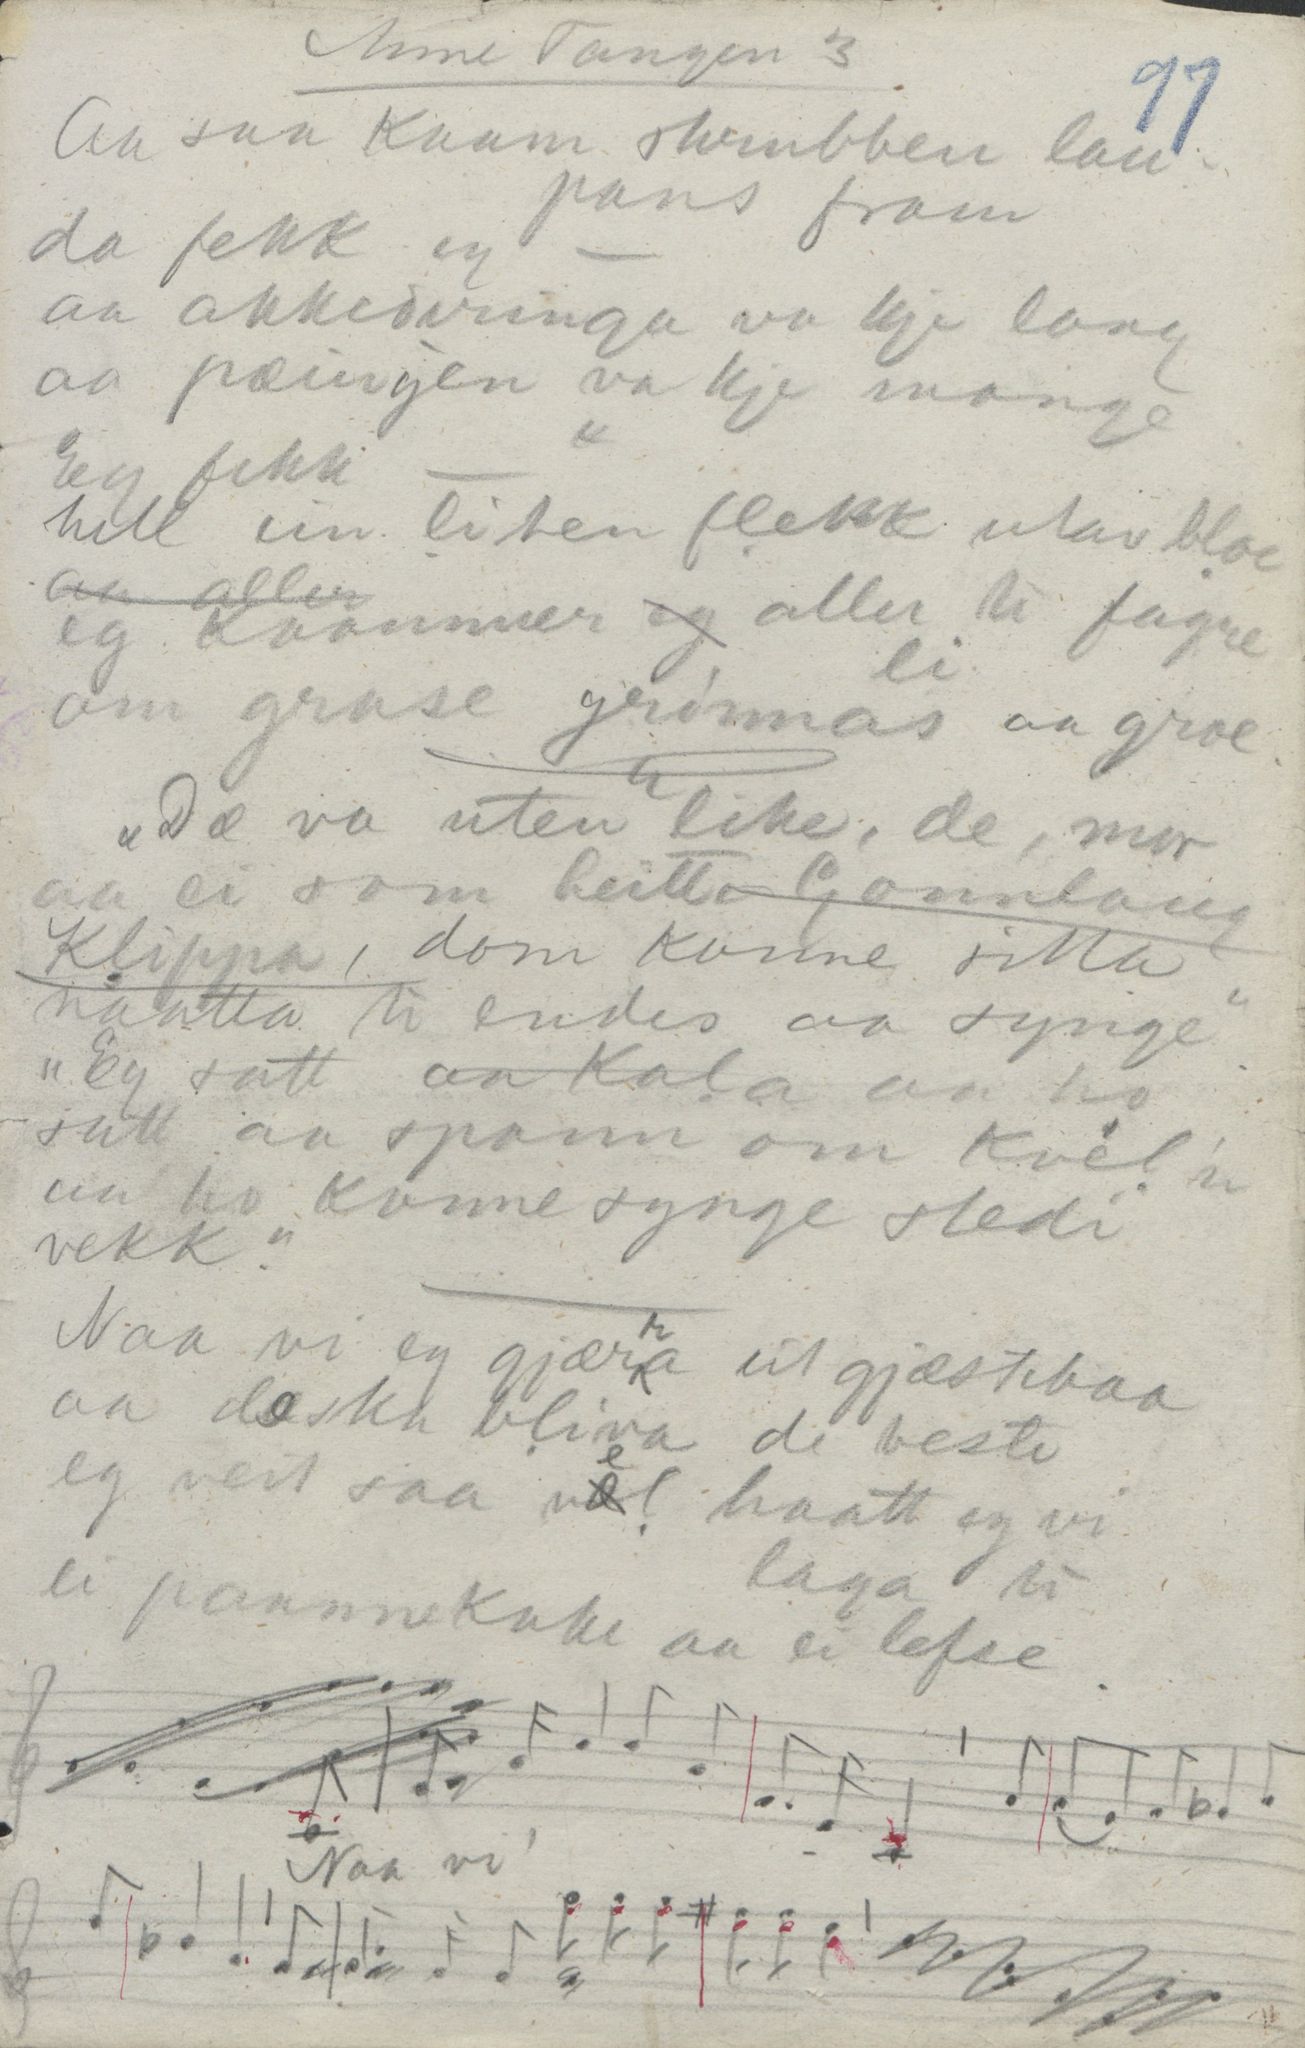 Anne Tangen 3
99
Aa saa kaam skrubben lau-
pans fram
da fekk eg —
aa akkedvringa va kje lang
aa pæingjen va kje mange
Eg fekk — "
hell ein liten flekk utav bloe
aa aller
eg kaanmer eg aller ti fagre
li
om grase grønnas aa groe
„Dæ va uten like, de, mor
aa ei som heitte Gonnlaug
Klippa, dom konne sitta
naatta ti endes aa synge"
„Eg satt aa Kala aa ho
satt aa spann om kvel'n
aa ho konne synge stedi
vekk."
Naa vi eg gjæra eit gjæstebaa
aa dæ ska bliva de beste
eg veit saa vel haatt eg vi
laga ti
ei paannekake aa ei lefse
Naa vi